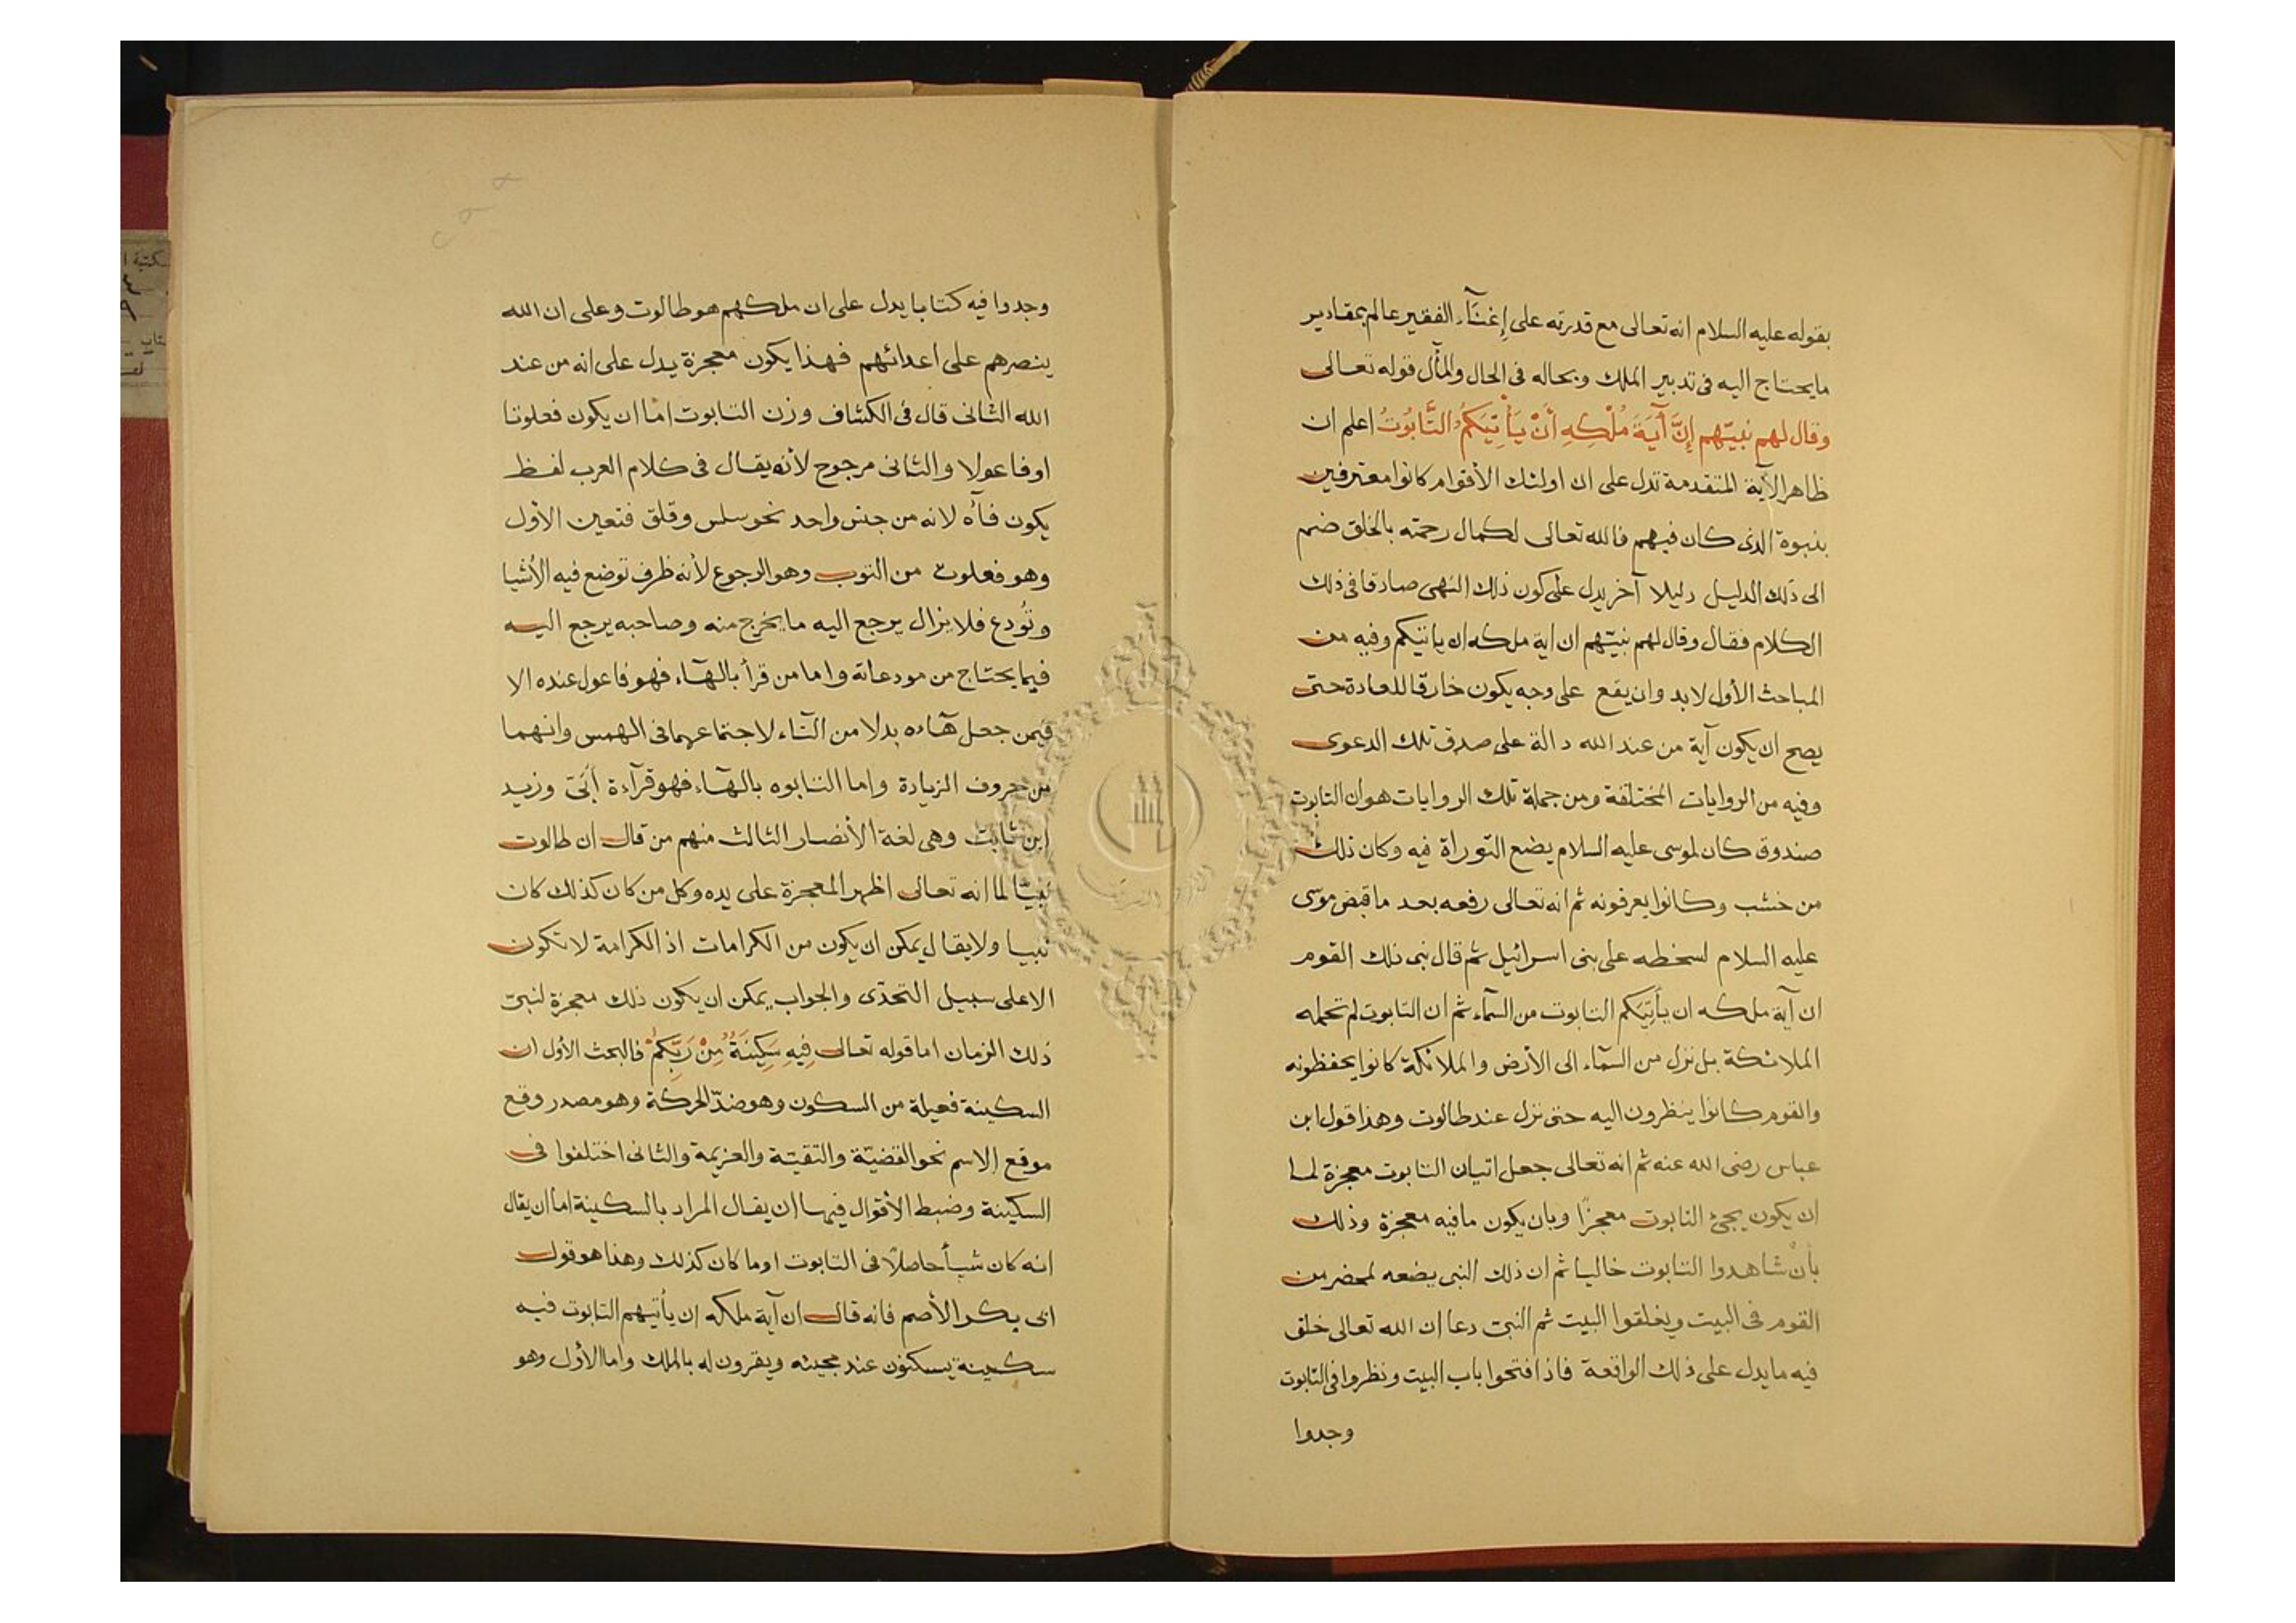 بقوله عليه السلام انه تعالى مع قدرته على إغنآء الفقير عالم بمقادير
ما يحتاج اليه فى تدبير الملك وبحاله فى الحال والمآل قوله تعالى
وقال لهم نبيّهم إِنَّ آيَةَ مُلْكِهِ أَنْ يَأْتِيَكُمُ التَّابُوتُ اعلم ان
ظاهر الآية المتقدمة تدل على ان اولئك الأقوام كانوا معترفين
بنبوة الذى كان فيهم فالله تعالى لكمال رحمته بالخلق ضم
الى ذلك الدليل دليلا آخر يدل على كون ذلك النهى صادقا فى ذلك
الكلام فقال وقال لهم نبيّهم ان اية ملكه ان ياتيكم وفيه من
المباحث الأول لابد وان يقع على وجه يكون خارقا للعادة حتى
يصح ان يكون آية من عند الله دالة على صدق تلك الدعوى
وفيه من الروايات المختلفة ومن جملة تلك الروايات هو أن التابوت
صندوق كان لموسى عليه السلام يضع التوراة فيه وكان ذلك
من خشب وكانوا يعرفونه ثم انه تعالى رفعه بعد ما قبض موسى
عليه السلام لسخطه على بنى اسرائيل ثم قال نبى ذلك القوم
ان آية ملكه ان يأتيكم التابوت من السمآء ثم ان التابوت لم تحمله
الملائكة بل نزل من السمآء الى الأرض والملائكة كانوا يحفظونه
والقوم كانوا ينظرون اليه حتى نزل عند طالوت وهذا قول ابن
عباس رضى الله عنه ثم انه تعالى جعل اتيان التابوت معجزة لما
ان يكون يجئ التابوت معجزًا وبان يكون ما فيه معجزة وذلك
بأن شاهدوا التابوت خاليا ثم ان ذلك النبى يضعه لمحضر من
القوم فى البيت ويغلقوا البيت ثم النبى دعا ان الله تعالى خلق
فيه ما يدل على ذلك الواقعة فاذا فتحوا باب البيت ونظروا فى التابوت
وجدوا
وجدوا فيه كتابا يدل على ان ملكهم هو طالوت وعلى ان الله
ينصرهم على اعدائهم فهذا يكون معجزة يدل على انه من عند
الله الثانى قال فى الكشاف وزن التابوت امّا ان يكون فعلوتا
او فاعولا والثانى مرجوح لأنه يقال فى كلام العرب لفظ
يكون فآه لانه من جنس واحد نحو سلس وقلق فتعين الأول
وهو فعلوت من التوب وهو الرجوع لأنه ظرف توضع فيه الأشيا
وتُودع فلا يزال يرجع اليه ما يخرج منه وصاحبه يرجع اليه
فيما يحتاج من مودعاته واما من قرأ بالهآء فهو فاعول عنده الا
فيمن جعل هآءه بدلا من التآء لاجتماعهما فى الهمس وانهما
من حروف الزيادة واما التابوه بالهآء فهو قرآءة أبىّ وزيد
ابن ثابت وهى لغة الأنصار الثالث منهم من قال ان طالوت
نبيّا لما انه تعالى اظهر المعجزة على يده وكل من كان كذلك كان
نبيا ولا يقال يمكن ان يكون من الكرامات اذ الكرامة لا تكون
الا على سبيل التحدّى والجواب يمكن ان يكون ذلك معجزة لنبىّ
ذلك الزمان اما قوله تعالى فِيهِ سَكِينَةٌ مِنْ رَبِّكُمْ فالبحث الأول ان
السكينة فعيلة من السكون وهو ضدّ الحركة وهو مصدر وقع
موقع الاسم نحو القضيّة والتقيّة والعزيمة والثانى اختلفوا فى
السكينة وضبط الأقوال فيها ان يقال المراد بالسكينة اما ان يقال
انه كان شيأ حاصلًا فى التابوت او ما كان كذلك وهذا هو قول
ابى بكر الأصم فانه قال ان آية ملكه ان يأتيهم التابوت فيه
سكينة يسكنون عند مجيئه ويقرون له بالملك واما الأول وهو